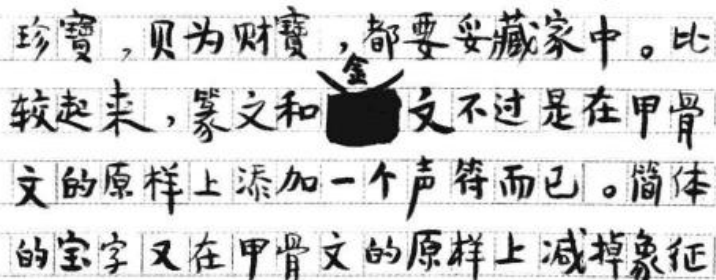 珍寶，贝为财寶，都要妥藏家中。比
较起来，篆文和金文不过是在甲骨
文的原样上添加一个声符而已。简体
的宝字又在甲骨文的原样上减掉象征